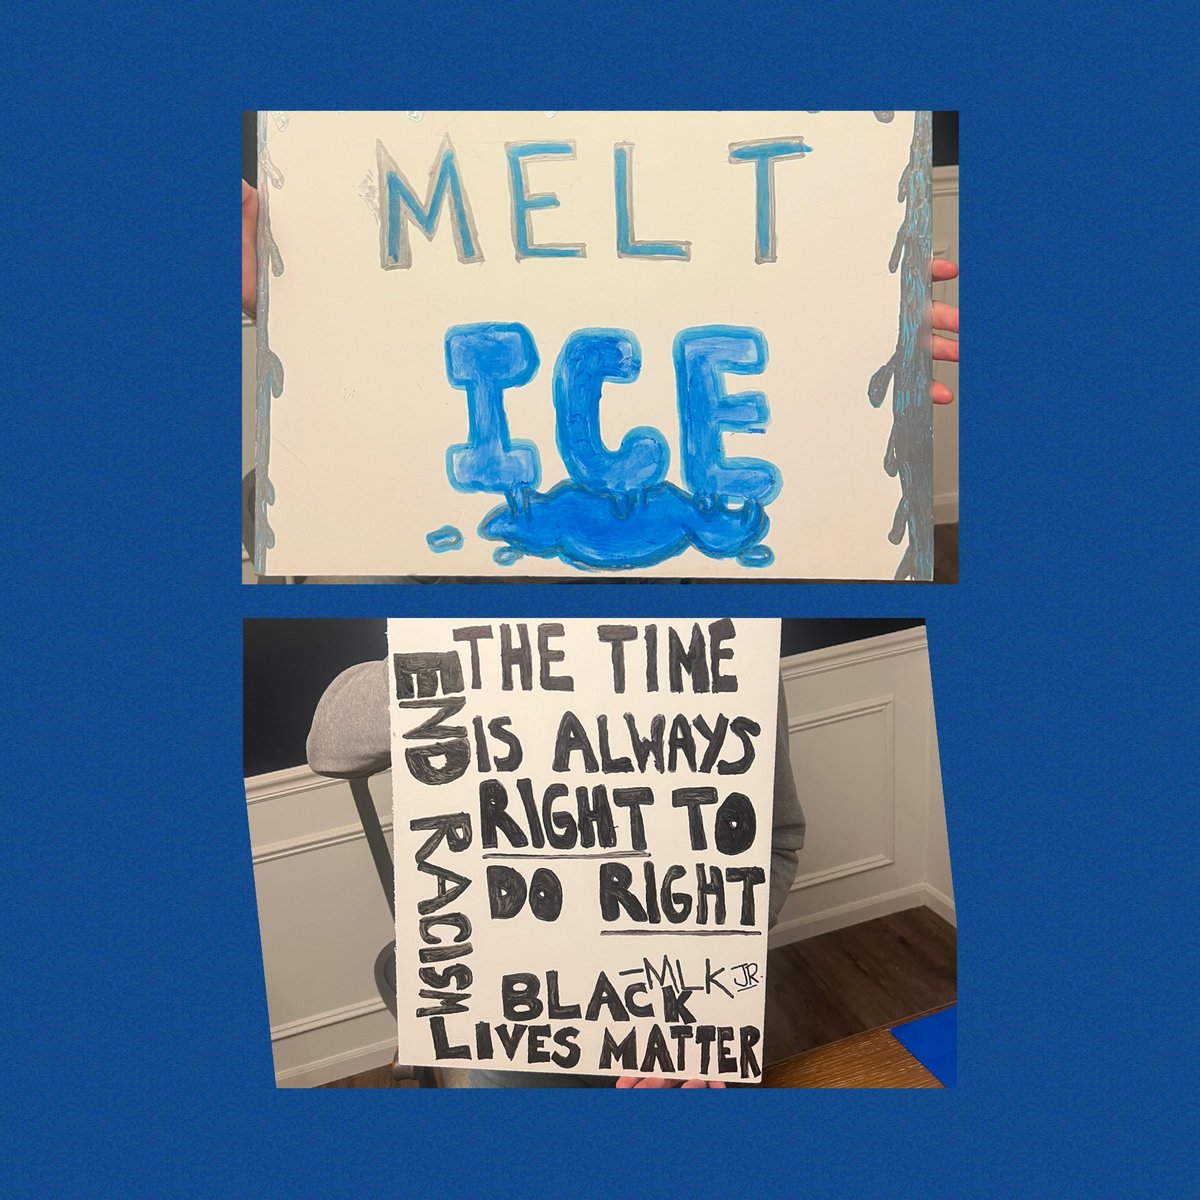 MELT
ICE
END RACISM
THE TIME
IS ALWAYS
RIGHT TO
DO RIGHT
-MLK JR.
BLACK
LIVES MATTER